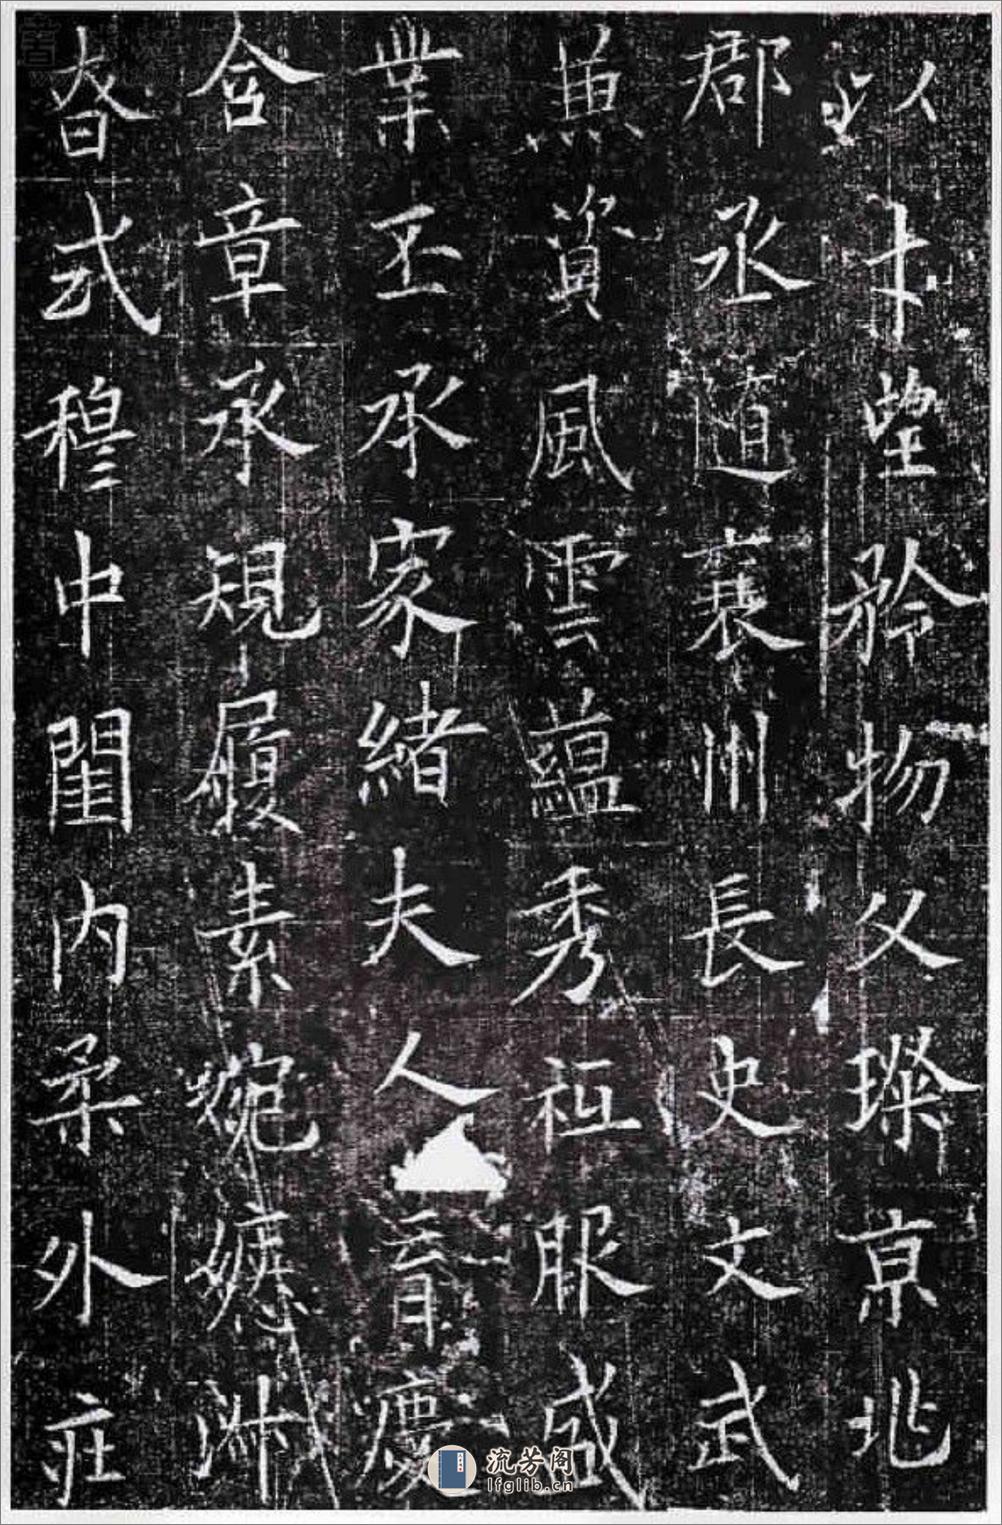 以才望矜物父璨京兆
郡丞道襄州長史文武
兼資風雲蘊秀祗服盛
業丕承家緒夫人育慶
含章承規履素婉嫕淑
昚式穆中閨内柔外莊
流芳阁
lfglib.cn